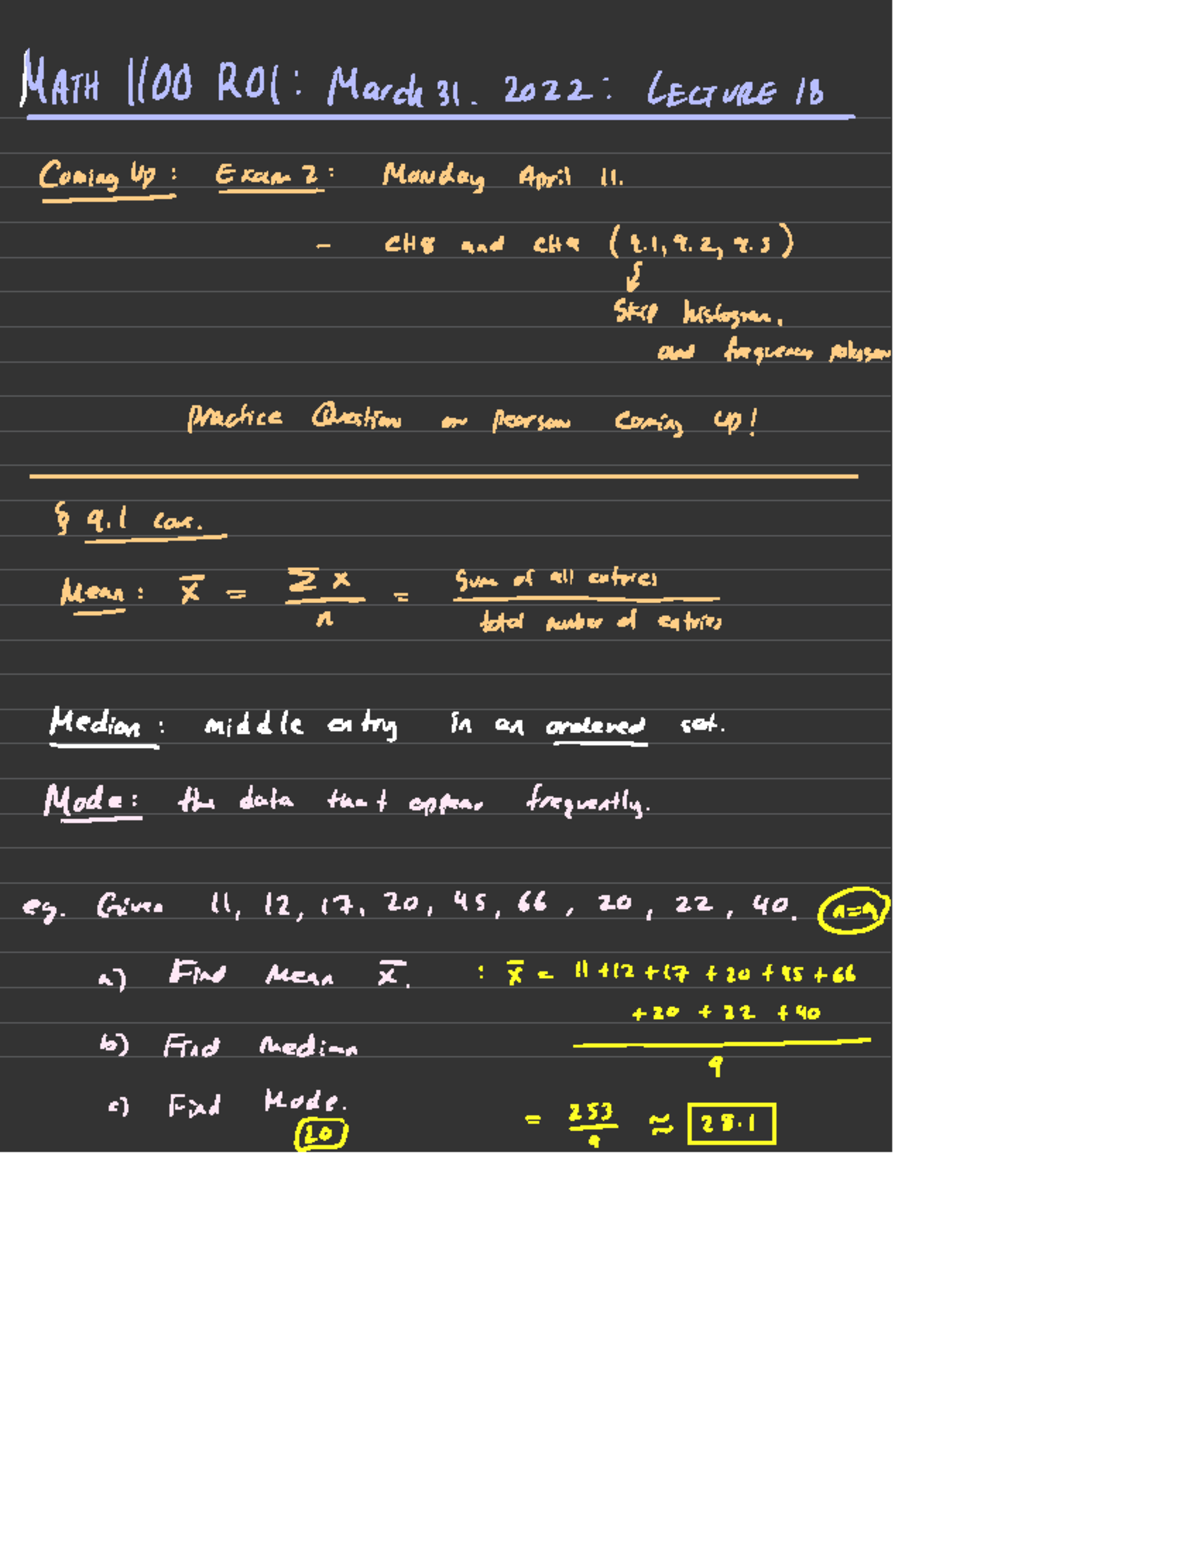 MATH 1100 R01: March 31. 2022: LECTURE 18
Coming Up: Exam 2: Monday April 11.
- CH8 and CH9 (9.1, 9.2, 9.3)
Skip histogram,
and frequency polygon
Practice Question on Pearson coming up!
§ 9.1 con.
Mean: x̄ = Σx / n = Sum of all entries / total number of entries
Median: middle entry in an ordered set.
Mode: the data that appear frequently.
eg. Given 11, 12, 17, 20, 45, 66, 20, 22, 40. n=9
a) Find Mean x̄. : x̄ = 11 + 12 + 17 + 20 + 45 + 66
+ 20 + 22 + 40
b) Find Median
9
c) Find Mode.
= 253/9 ≈ 28.1
20